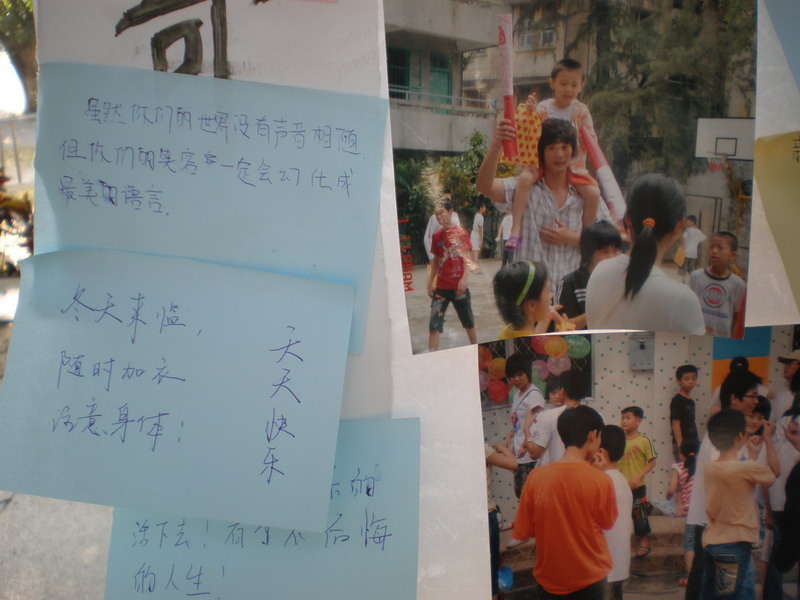 虽然你们的世界没有声音相随,
但你们的笑容一定会幻化成
最美的语言.
冬天来临,
随时加衣
注意身体!
天天快乐
的
活下去!有个不后悔
的人生!